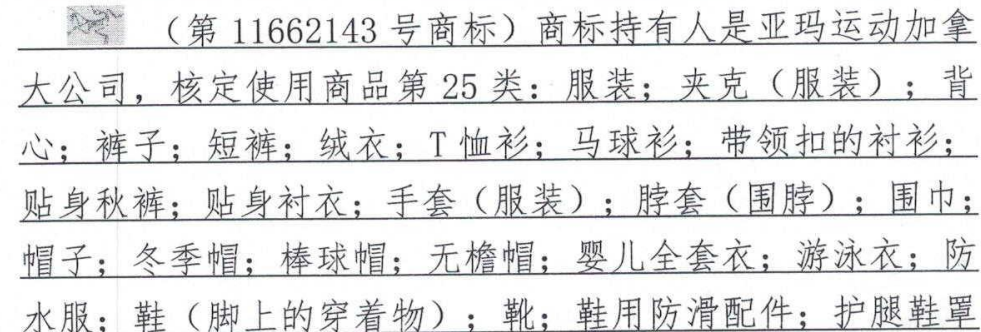 （第 11662143 号商标）商标持有人是亚玛运动加拿
大公司，核定使用商品第 25 类：服装；夹克（服装）；背
心；裤子；短裤；绒衣；T 恤衫；马球衫；带领扣的衬衫；
贴身秋裤；贴身衬衣；手套（服装）；脖套（围脖）；围巾；
帽子；冬季帽；棒球帽；无檐帽；婴儿全套衣；游泳衣；防
水服；鞋（脚上的穿着物）；靴；鞋用防滑配件；护腿鞋罩